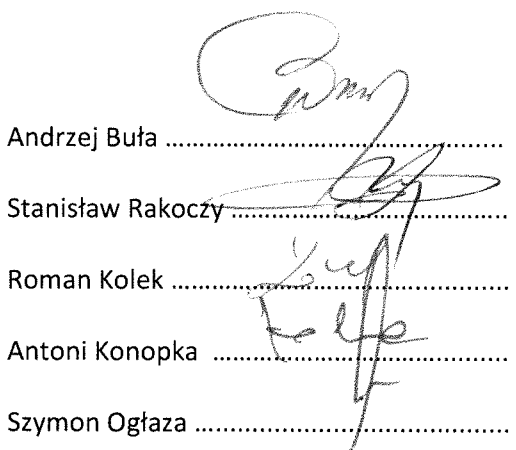 Andrzej Buła ..........................................
Stanisław Rakoczy ..................................
Roman Kolek .........................................
Antoni Konopka ....................................
Szymon Ogłaza ......................................